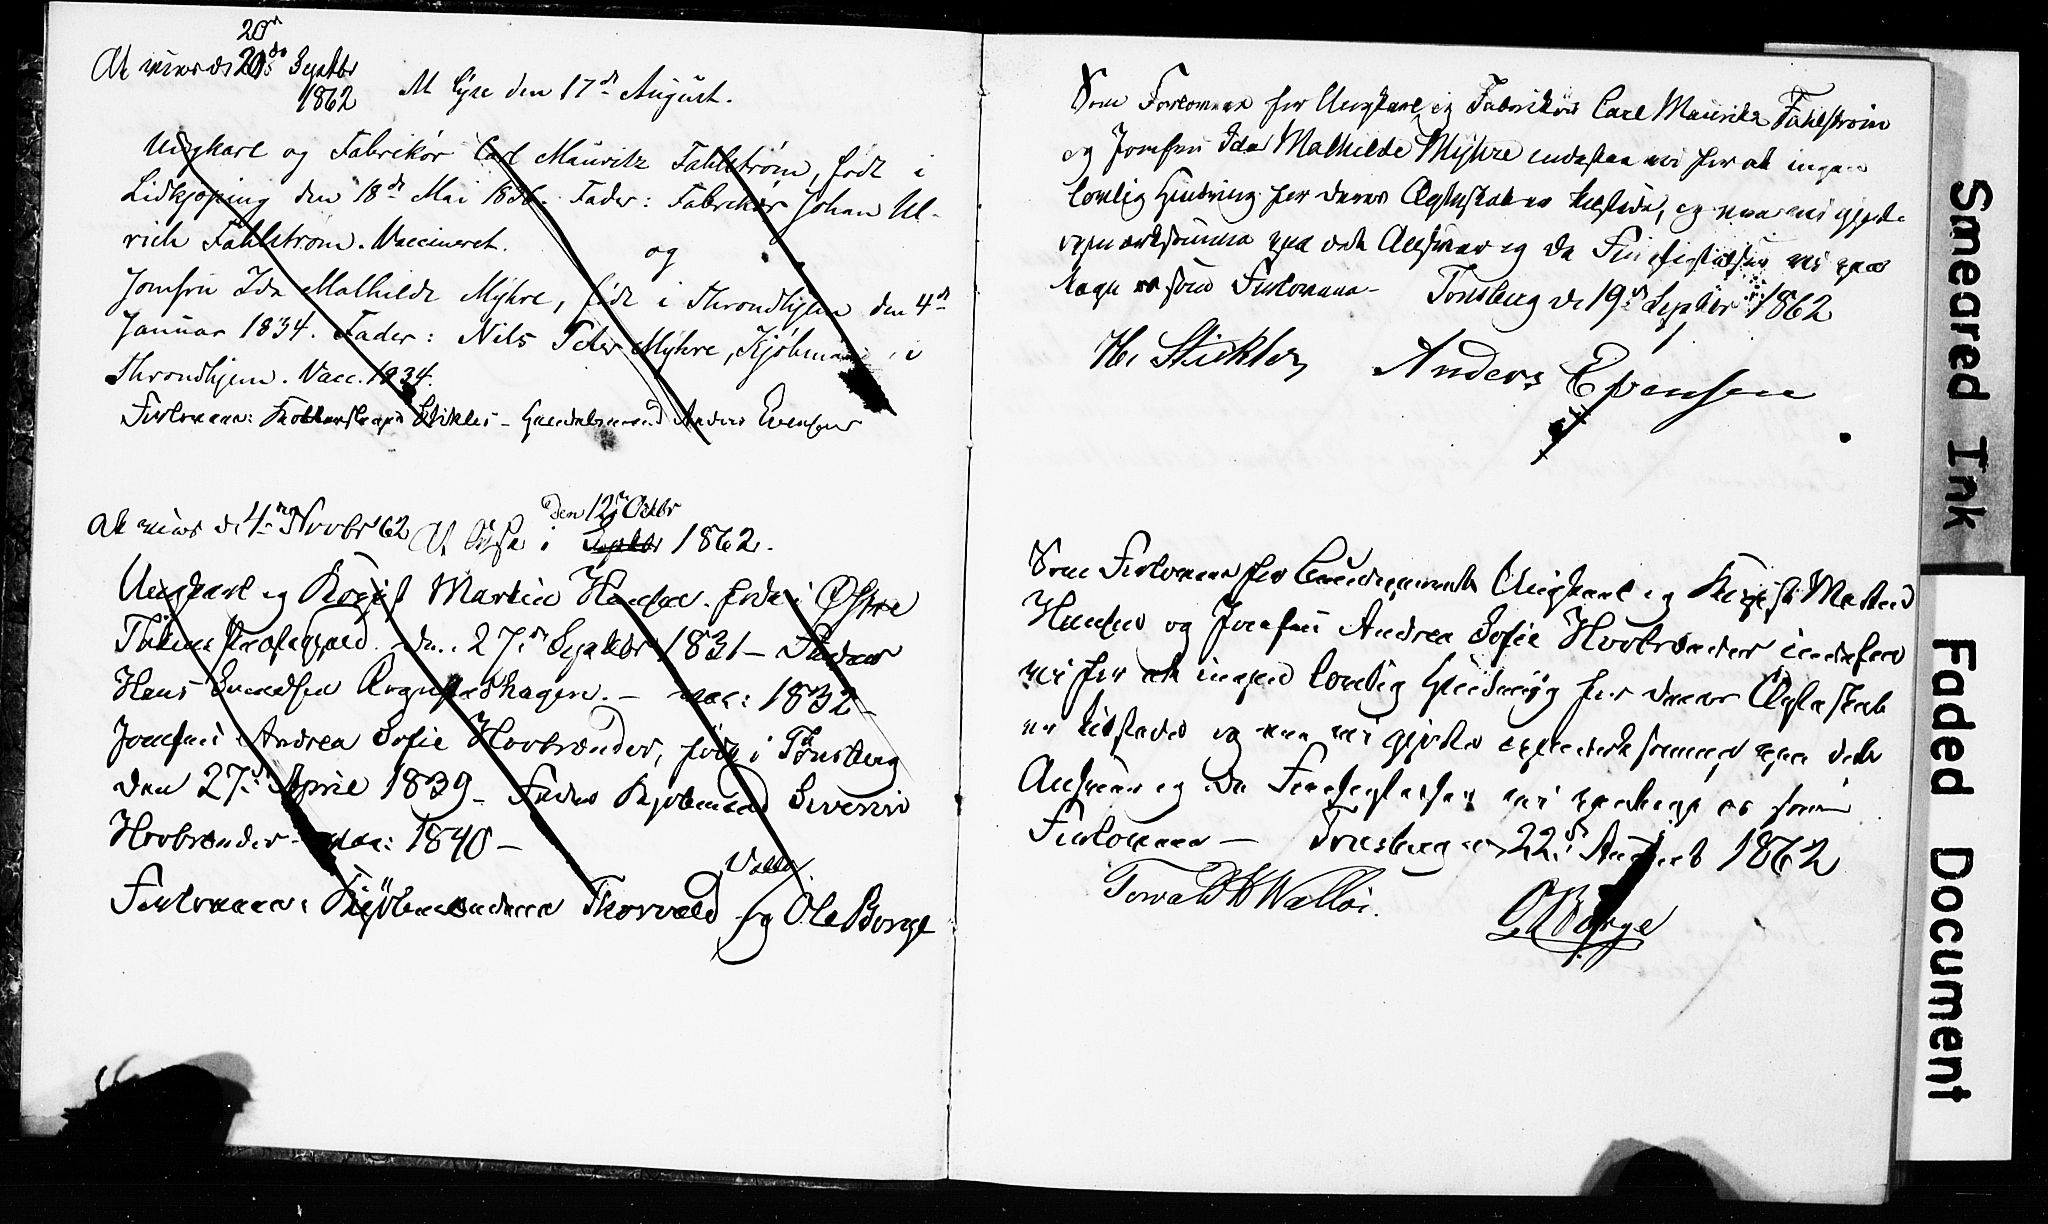 20de
At vies d. 20de Septbr
1862
At lyse den 17de August.
Ungkarl og Fabrikør Carl Mauritz Fahlstrøm, født i
Lidkjøping den 18de Mai 1836. Fader: Fabrikør Johan Ul-
rich Fahlstrøm. Vaccineret.
og
Jomfru Ida Mathilde Myhre, født i Throndhjem den 4de
Januar 1834. Fader: Nils Peter Myhre, Kjøbmand i
Throndhjem. Vacc. 1934.
Forlovere: Stikler - Handelsmand Anders Evensen
At vies d. 4de Novbr 62
den 12te Octbr
At lyse i Septbr 1862.
Ungkarl og Martin Hansen, født i Østre
Thoten Præstegjæld den 27de Septbr 1831 - Fader
Hans vac: 1832 -
Jomfru Andrea Sofie Hovbrender, født i Tønsberg
den 27de April 1839 - Fader Kjøbmand Severin
Hovbrender - vac: 1840 -
Valløi
Forlovere: Kjøbmændene Thorvald og Ole Borge
Som Forlovere for Ungkarl og Fabrikør Carl Mauritz Fahlstrøm
og Jomfru Ida Mathilde Myhre indestaa vi for at ingen
lovlig Hindring for deres Ægteskab er tilstede, og ere vi gjorte
opmærksomme paa det Ansvar og de Forpligtelser vi paa
tage os som Forlovere - Tønsberg d. 19de Septbr 1862
H. Stickler, Anders Evensen
Som Forlovere for Ungkarl og Martin
Hansen og Jomfru Andrea Sofie Hovbrender indestaa
vi for at ingen lovlig Hindring for deres Ægteskab
er tilstede og ere vi gjorte opmærksomme paa det
Ansvar og de Forpligtelser vi paatage os som
Forlovere - Tønsberg d. 22de August 1862
Torvald Walløi.
O Borge
Smeared Ink
Faded Document